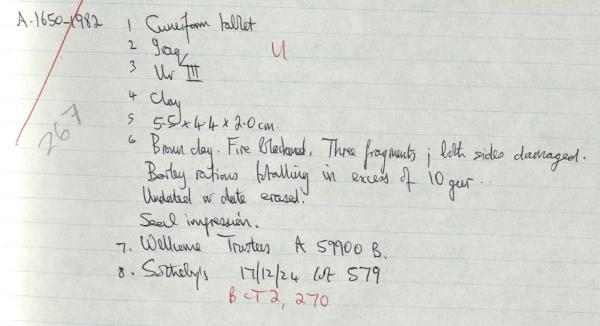 A.1650-1982 1 Cuneiform tablet
2 Iraq U
3 Ur III
267
4 Clay
5 5.5 x 4.4 x 2.0 cm.
6 Brown clay. Fire blackened. Three fragments; both sides damaged.
Barley rations totalling in excess of 10 gur...
Undated or date erased.
Seal impression.
7. Wellcome Trustees A 59900 B.
8. Sotheby's 17/12/24 lot 579
BCT 2, 270